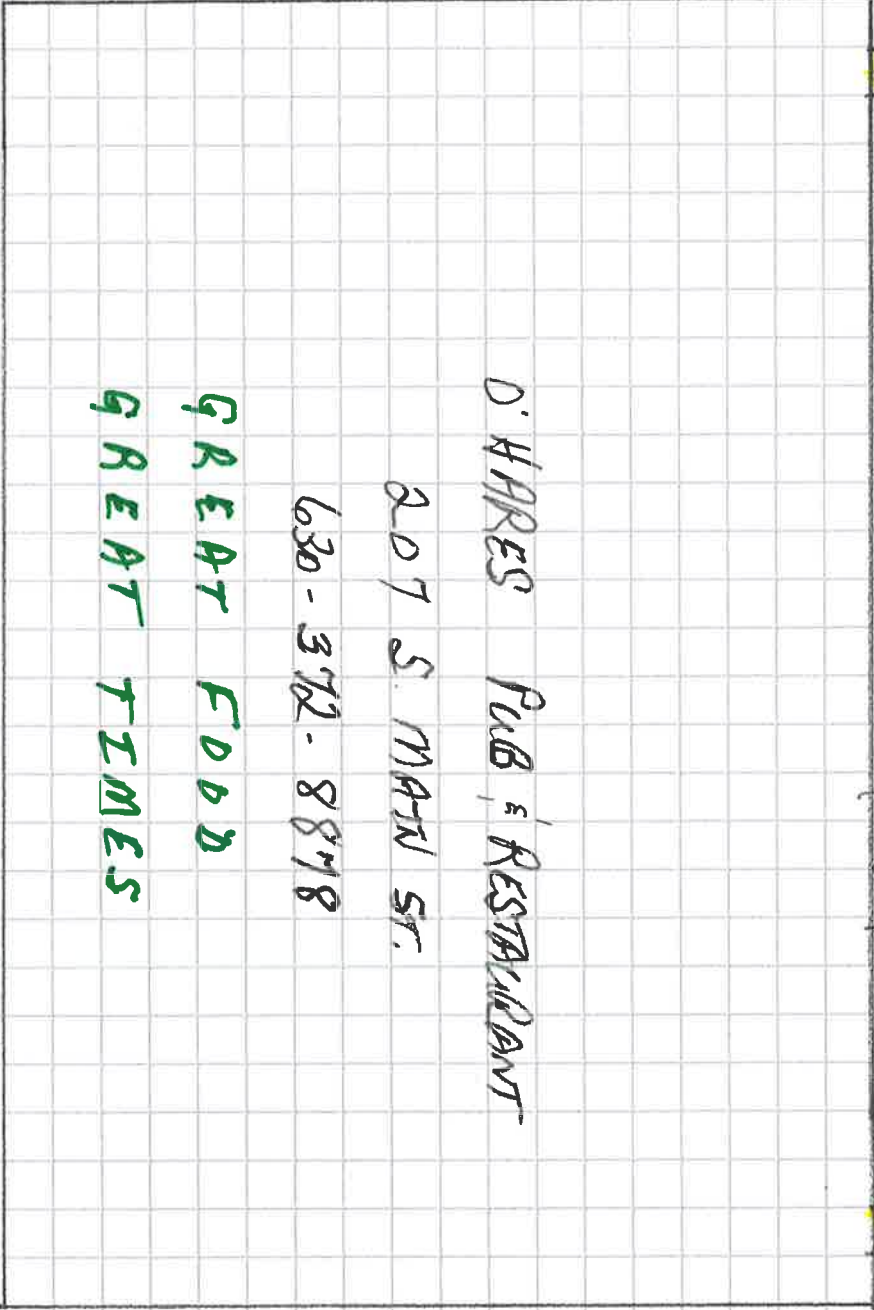 O'HARES PUB & RESTAURANT
207 S. MAIN ST.
630-372-8878
GREAT FOOD
GREAT TIMES